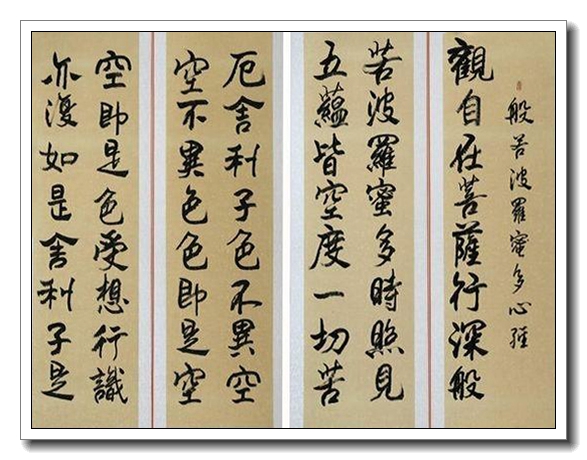 般若波羅蜜多心經
觀自在菩薩行深般
若波羅蜜多時照見
五蘊皆空度一切苦
厄舍利子色不異空
空不異色色即是空
空即是色受想行識
亦復如是舍利子是